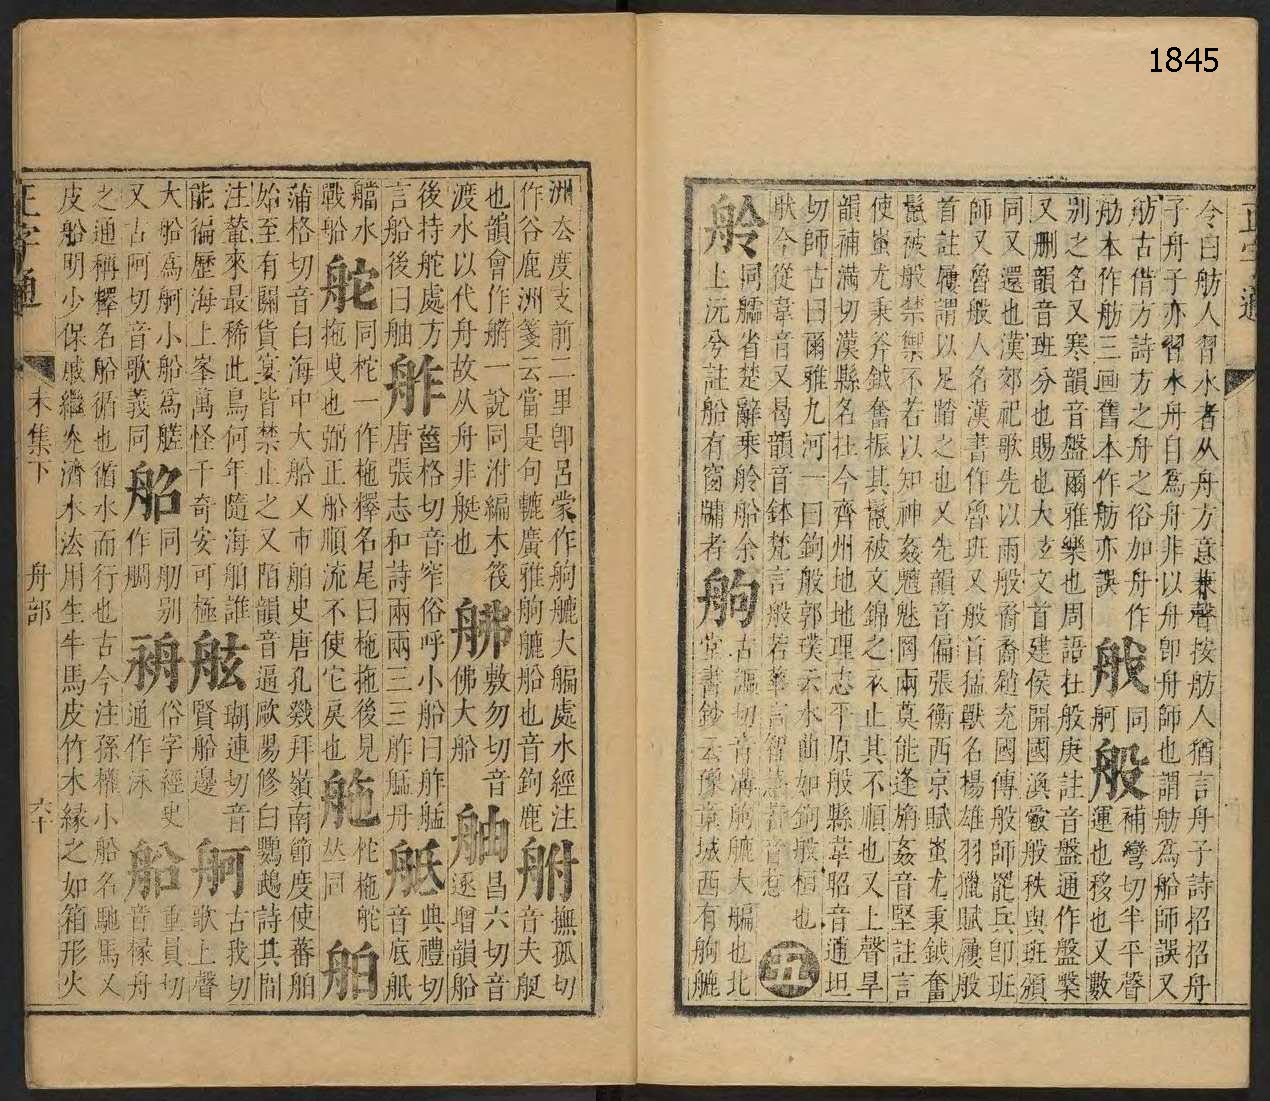 1845
正字通
今曰舫人習水者从舟方意兼聲按舫人猶言舟子詩招招舟
子舟子亦習水舟自爲舟非以舟卽舟師也謂舫爲船師誤又
舫古借方詩方之舟之俗如舟作
舫本作舫三画舊本作舫亦誤 𦨗同舸 般補彎切半平聲運也移也又數
别之名又寒韻音盤爾雅樂也周語杜般庚註音盤通作盤槃
又删韻音班分也賜也大𤣥文首建侯開國渙號般秩與班頒
同又還也漢郊祀歌先以雨般裔裔趙充國傳般師罷兵卽班
師又魯般人名漢書作魯班又般首猛獸名楊雄羽獵賦履般
首註履謂以足蹋之也又先韻音偏張衡西京賦蚩尤秉鉞奮
鬣被般禁禦不若以知神姦魑魅罔兩莫能逢旃姦音堅註言
使蚩尤秉斧鉞奮振其鬣被文錦之衣止其不順也又上聲旱
韻補滿切漢縣名在今齊州地地理志平原般縣韋昭音逋坦
切師古曰爾雅九河一曰鉤般郭璞云水曲如鉤般桓也
狀今從韋音又曷韻音鉢梵言般若華言智慧若音惹
舲同艫省楚辭乘舲船余上沅兮註船有窗牖者 舽古
堂書鈔云豫章城西有舽艫
洲去度支前二里卽呂蒙作舽艫大艑處水經注
作谷鹿洲箋云當是句轆廣雅舽艫船也音鉤鹿 䑧撫孤切音夫艇
也韻會作艄一說同泭編木筏
渡水以代舟故从舟非艇也 艴敷勿切音佛大船 舳昌六切音逐增韻船
後持舵處方
言船後曰舳 舴蒥格切音窄俗呼小船曰舴艋
唐張志和詩兩兩三三舴艋舟 䑛典禮切音底舭
艡水
戰船 舵同柁一作柂釋名尾曰柂拖後見
拖曳也弼正船順流不使它戾也 䑨柁柂舵
𠀤同 舶
蒲格切音白海中大船又市舶史唐孔戣拜嶺南節度使蕃舶
始至有閱貨宴皆禁止之又陌韻音逼歐陽修白鸚鵡詩其間
注輦來最稀此鳥何年隨海舶誰
能徧歷海上峯萬怪千奇安可極 舷瑚連切音賢船邊 舸古我切歌上聲
大船爲舸小船爲艖
又古阿切音歌義同 船同舠别作䑩 𦨴俗字經史通作泳 船重員切音椽舟
之通稱釋名船循也循水而行也古今注孫權小船名馳馬又
皮船明少保戚繼光濟水法用生牛馬皮竹木緣之如箱形火
正字通
未集下
舟部
六十